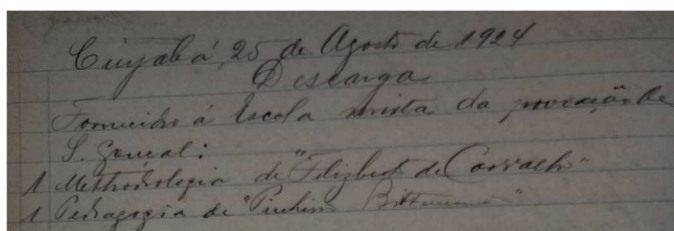 Cuyabá, 25 de Agosto de 1924
Descarga
Fornecido á Escola mixta da povoação de
S. Gonçal:
1 Methodologia de "Felizbert de Carvalho"
1 Pedagogia de "Pinheiro Bittencourt"